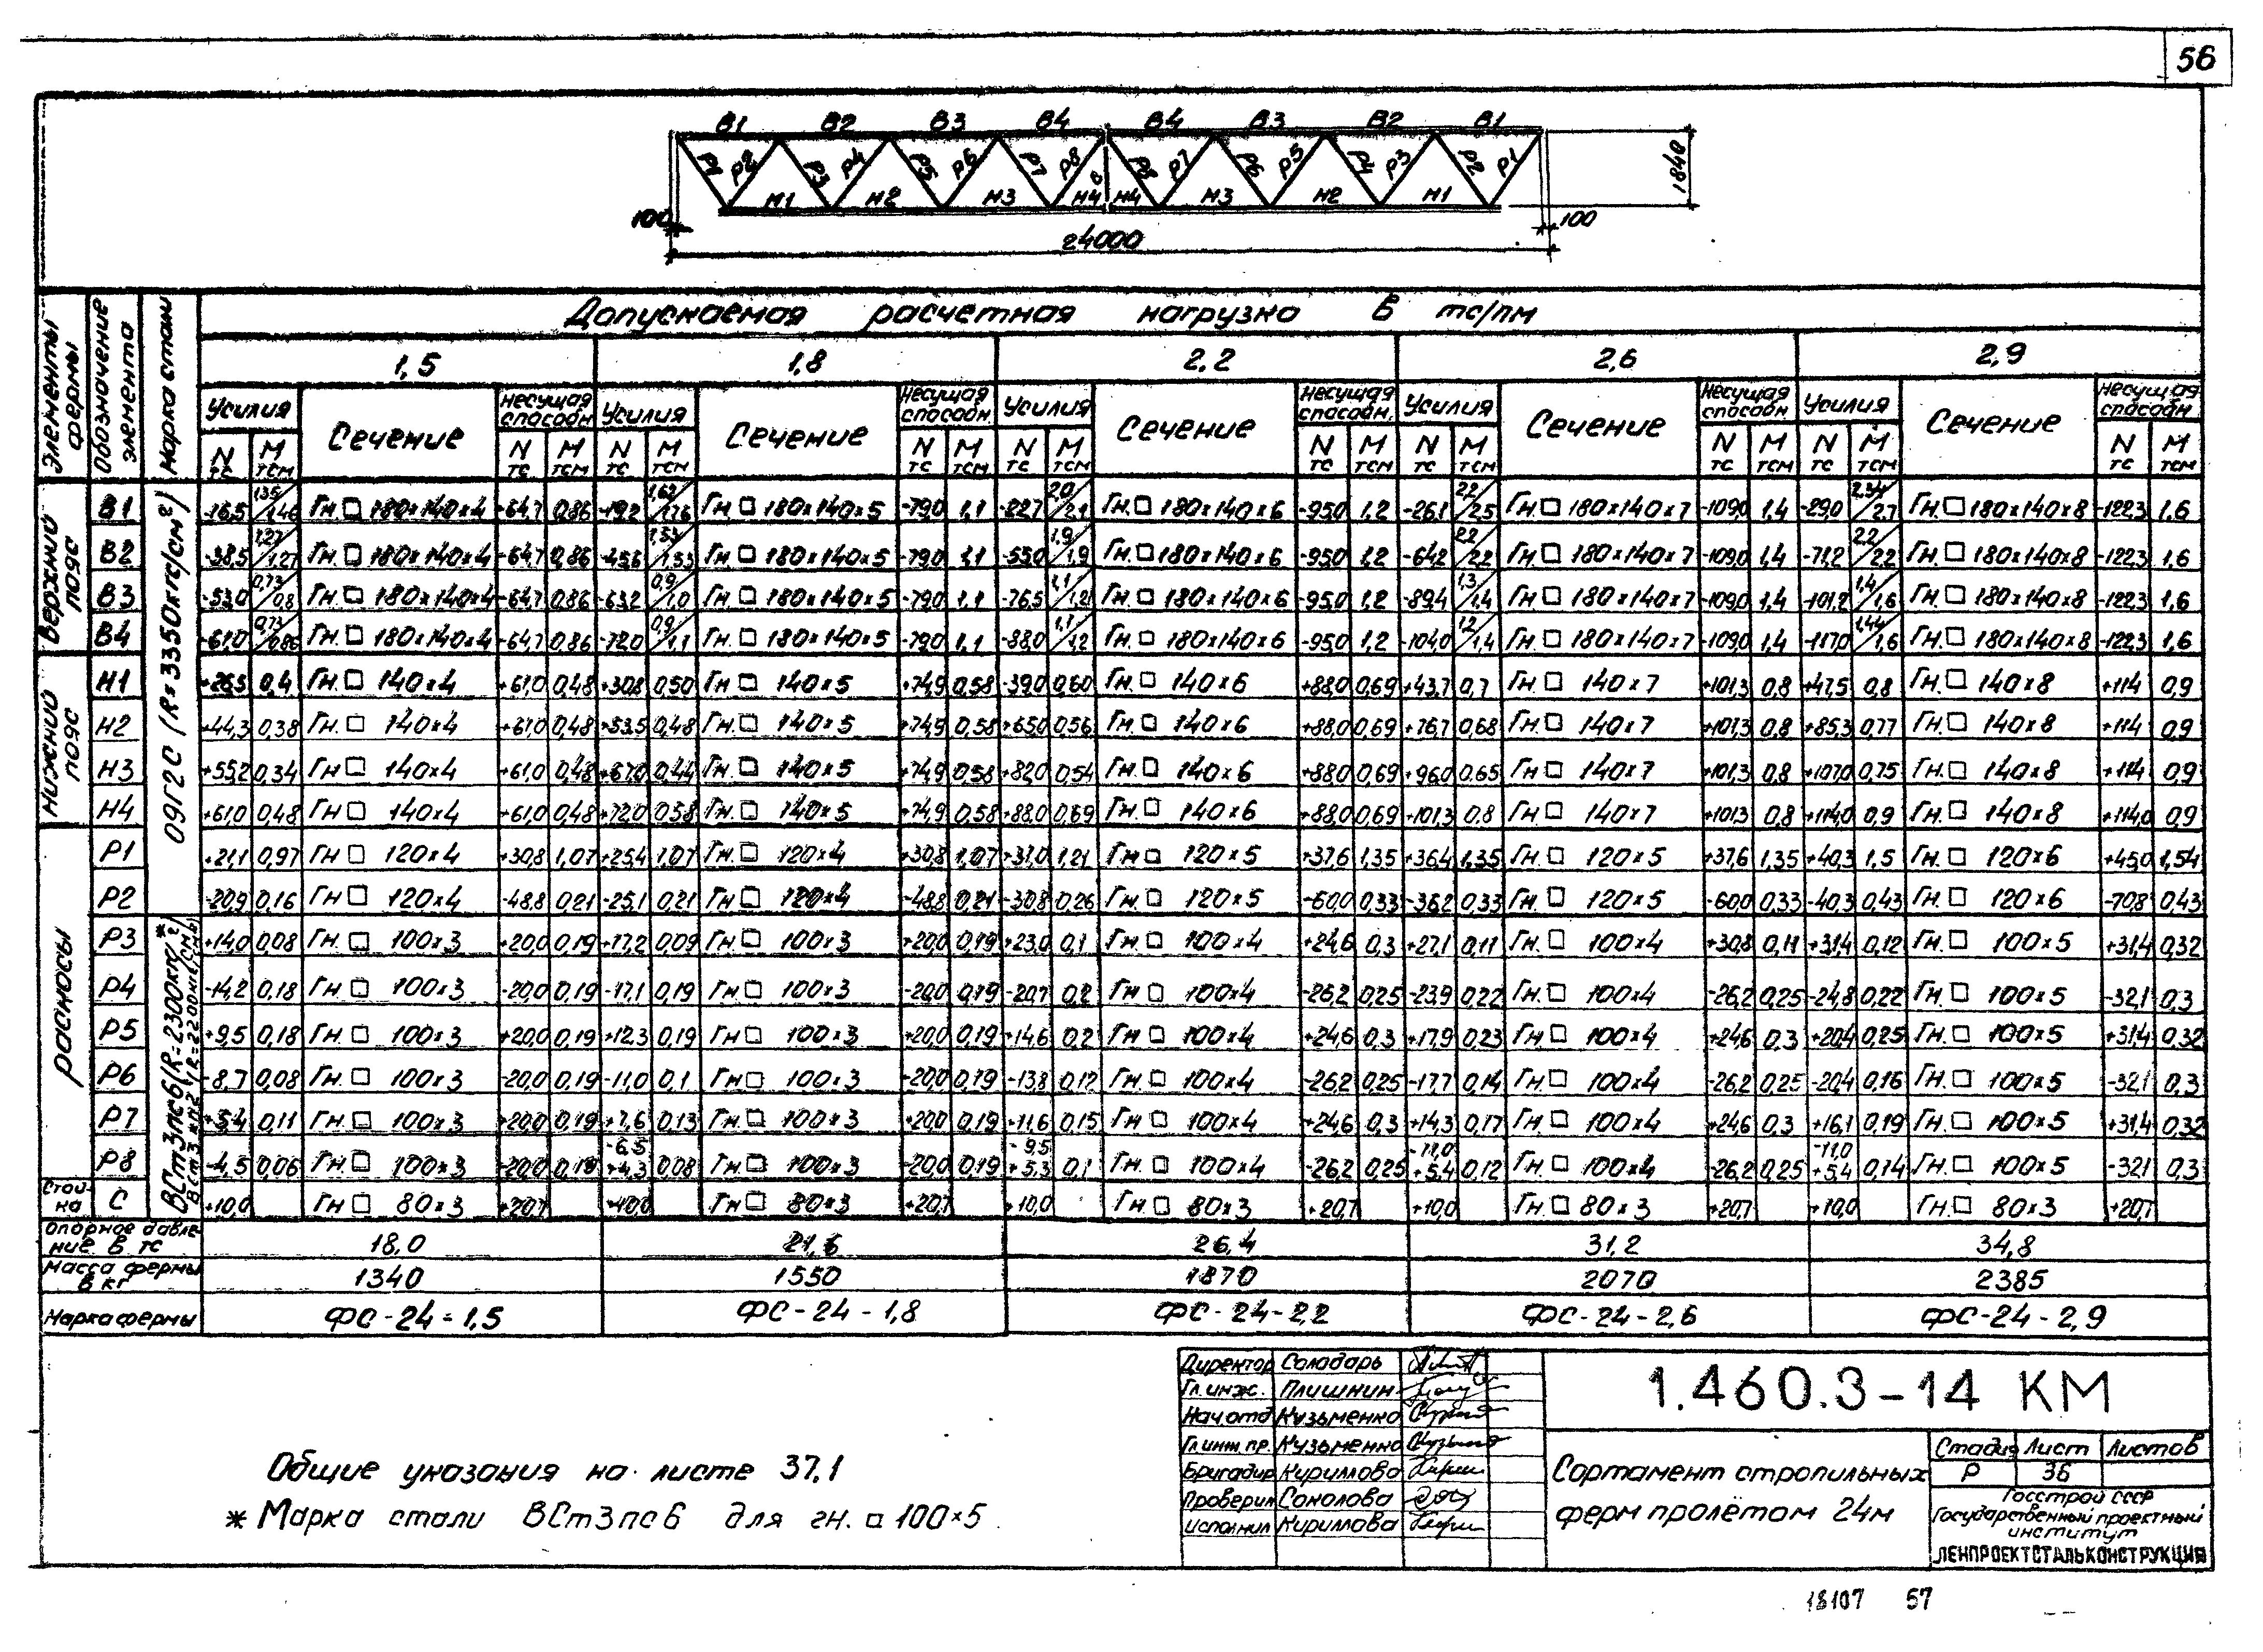 56
В1 В2 В3 В4 В4 В3 В2 В1
Р1 Р2 Р3 Р4 Р5 Р6 Р7 Р8 С Р8 Р7 Р6 Р5 Р4 Р3 Р2 Р1
Н1 Н2 Н3 Н4 Н4 Н3 Н2 Н1
1840
100 100
24000
Элементы фермы
Обозначение элемента
Марка стали
Допускаемая расчетная нагрузка в тс/пм
1,5 1,8 2,2 2,6 2,9
Усилия Сечение Несущая способн. Усилия Сечение Несущая способн. Усилия Сечение Несущая способн. Усилия Сечение Несущая способн. Усилия Сечение Несущая способн.
N тс М тсм N тс М тсм N тс М тсм N тс М тсм N тс М тсм N тс М тсм N тс М тсм N тс М тсм N тс М тсм N тс М тсм
Верхний пояс
09Г2С (R=3350кгс/см²)
В1 -16,5 1,35/1,46 Гн.□ 180×140×4 -64,7 0,86 -19,2 1,62/1,76 Гн.□ 180×140×5 -79,0 1,1 -22,7 2,0/2,1 Гн.□ 180×140×6 -95,0 1,2 -26,1 2,2/2,5 Гн.□ 180×140×7 -109,0 1,4 -29,0 2,34/2,7 Гн.□ 180×140×8 -122,3 1,6
В2 -38,5 1,27/1,27 Гн.□ 180×140×4 -64,7 0,86 -45,6 1,53/1,53 Гн.□ 180×140×5 -79,0 1,1 -55,0 1,9/1,9 Гн.□ 180×140×6 -95,0 1,2 -64,2 2,2/2,2 Гн.□ 180×140×7 -109,0 1,4 -71,2 2,2/2,2 Гн.□ 180×140×8 -122,3 1,6
В3 -53,0 0,73/0,8 Гн.□ 180×140×4 -64,7 0,86 -63,2 0,9/1,0 Гн.□ 180×140×5 -79,0 1,1 -76,5 1,1/1,2 Гн.□ 180×140×6 -95,0 1,2 -89,4 1,3/1,4 Гн.□ 180×140×7 -109,0 1,4 -101,2 1,4/1,6 Гн.□ 180×140×8 -122,3 1,6
В4 -61,0 0,73/0,86 Гн.□ 180×140×4 -64,7 0,86 -72,0 0,9/1,1 Гн.□ 180×140×5 -79,0 1,1 -88,0 1,1/1,2 Гн.□ 180×140×6 -95,0 1,2 -104,0 1,2/1,4 Гн.□ 180×140×7 -109,0 1,4 -117,0 1,44/1,6 Гн.□ 180×140×8 -122,3 1,6
Нижний пояс
Н1 +26,5 0,4 Гн.□ 140×4 +61,0 0,48 +30,8 0,50 Гн.□ 140×5 +74,9 0,58 -39,0 0,60 Гн.□ 140×6 +88,0 0,69 +43,7 0,7 Гн.□ 140×7 +101,3 0,8 +47,5 0,8 Гн.□ 140×8 +114 0,9
Н2 +44,3 0,38 Гн.□ 140×4 +61,0 0,48 +53,5 0,48 Гн.□ 140×5 +74,9 0,58 +65,0 0,56 Гн.□ 140×6 +88,0 0,69 +76,7 0,68 Гн.□ 140×7 +101,3 0,8 +85,3 0,77 Гн.□ 140×8 +114 0,9
Н3 +55,2 0,34 Гн□ 140×4 +61,0 0,48 +67,0 0,44 Гн.□ 140×5 +74,9 0,58 +82,0 0,54 Гн.□ 140×6 +88,0 0,69 +96,0 0,65 Гн□ 140×7 +101,3 0,8 +107,0 0,75 Гн.□ 140×8 +114 0,9
Н4 +61,0 0,48 Гн.□ 140×4 +61,0 0,48 +72,0 0,58 Гн.□ 140×5 +74,9 0,58 +88,0 0,69 Гн.□ 140×6 +88,0 0,69 +101,3 0,8 Гн.□ 140×7 +101,3 0,8 +114,0 0,9 Гн.□ 140×8 +114,0 0,9
Раскосы
Р1 +21,1 0,97 Гн □ 120×4 +30,8 1,07 +25,4 1,07 Гн.□ 120×4 +30,8 1,07 +31,0 1,21 Гн □ 120×5 +37,6 1,35 +36,4 1,35 Гн.□ 120×5 +37,6 1,35 +40,3 1,5 Гн.□ 120×6 +45,0 1,54
Р2 -20,9 0,16 Гн □ 120×4 -48,8 0,21 -25,1 0,21 Гн □ 120×4 -48,8 0,21 -30,8 0,26 Гн.□ 120×5 -60,0 0,33 -36,2 0,33 Гн.□ 120×5 -60,0 0,33 -40,3 0,43 Гн.□ 120×6 -70,8 0,43
ВСт3пс6 (R=2300кгс/см²)*
Р3 +14,0 0,08 Гн.□ 100×3 +20,0 0,19 +17,2 0,09 Гн.□ 100×3 +20,0 0,19 +23,0 0,1 Гн.□ 100×4 +24,6 0,3 +27,1 0,11 Гн.□ 100×4 +30,8 0,11 +31,4 0,12 Гн.□ 100×5 +31,4 0,32
Р4 -14,2 0,18 Гн.□ 100×3 -20,0 0,19 -17,1 0,19 Гн□ 100×3 -20,0 0,19 -20,7 0,2 Гн □ 100×4 -26,2 0,25 -23,9 0,22 Гн.□ 100×4 -26,2 0,25 -24,8 0,22 Гн.□ 100×5 -32,1 0,3
Р5 +9,5 0,18 Гн □ 100×3 +20,0 0,19 +12,3 0,19 Гн□ 100×3 +20,0 0,19 +14,6 0,2 Гн □ 100×4 +24,6 0,3 +17,9 0,23 Гн.□ 100×4 +24,6 0,3 +20,4 0,25 Гн.□ 100×5 +31,4 0,32
Р6 -8,7 0,08 Гн.□ 100×3 -20,0 0,19 -11,0 0,1 Гн□ 100×3 -20,0 0,19 -13,8 0,12 Гн.□ 100×4 -26,2 0,25 -17,7 0,14 Гн.□ 100×4 -26,2 0,25 -20,4 0,16 Гн.□ 100×5 -32,1 0,3
Р7 +5,4 0,11 Гн □ 100×3 +20,0 0,19 +7,6 0,13 Гн.□ 100×3 +20,0 0,19 +11,6 0,15 Гн □ 100×4 +24,6 0,3 +14,3 0,17 Гн.□ 100×4 +24,6 0,3 +16,1 0,19 Гн.□ 100×5 +31,4 0,32
Р8 -4,5 0,06 Гн.□ 100×3 -20,0 0,19 -6,5 +4,3 0,08 Гн.□ 100×3 -20,0 0,19 -9,5 +5,3 0,1 Гн.□ 100×4 -26,2 0,25 -11,0 +5,4 0,12 Гн.□ 100×4 -26,2 0,25 -11,0 +5,4 0,14 Гн.□ 100×5 -32,1 0,3
Стойка С +10,0 Гн □ 80×3 +20,7 +10,0 Гн□ 80×3 +20,7 +10,0 Гн.□ 80×3 +20,7 +10,0 Гн.□ 80×3 +20,7 +10,0 Гн.□ 80×3 +20,7
Опорное давление в тс 18,0 21,6 26,4 31,2 34,8
Масса фермы в кг 1340 1550 1870 2070 2385
Марка фермы ФС-24-1,5 ФС-24-1,8 ФС-24-2,2 ФС-24-2,6 ФС-24-2,9
Общие указания на листе 37,1
* Марка стали ВСт3пс6 для гн.□ 100×5
Директор Соладарь
Гл.инж. Плишкин
Нач.отд Кузьменко
Гл.инж.пр. Кузьменко
Бригадир Кириллова
Проверил Соколова
Исполнил Кириллова
1.460.3-14 КМ
Сортамент стропильных
ферм пролётом 24м
Стадия Лист Листов
Р 36
Госстрой СССР
Государственный проектный
институт
ЛЕНПРОЕКТСТАЛЬКОНСТРУКЦИЯ
18107 57